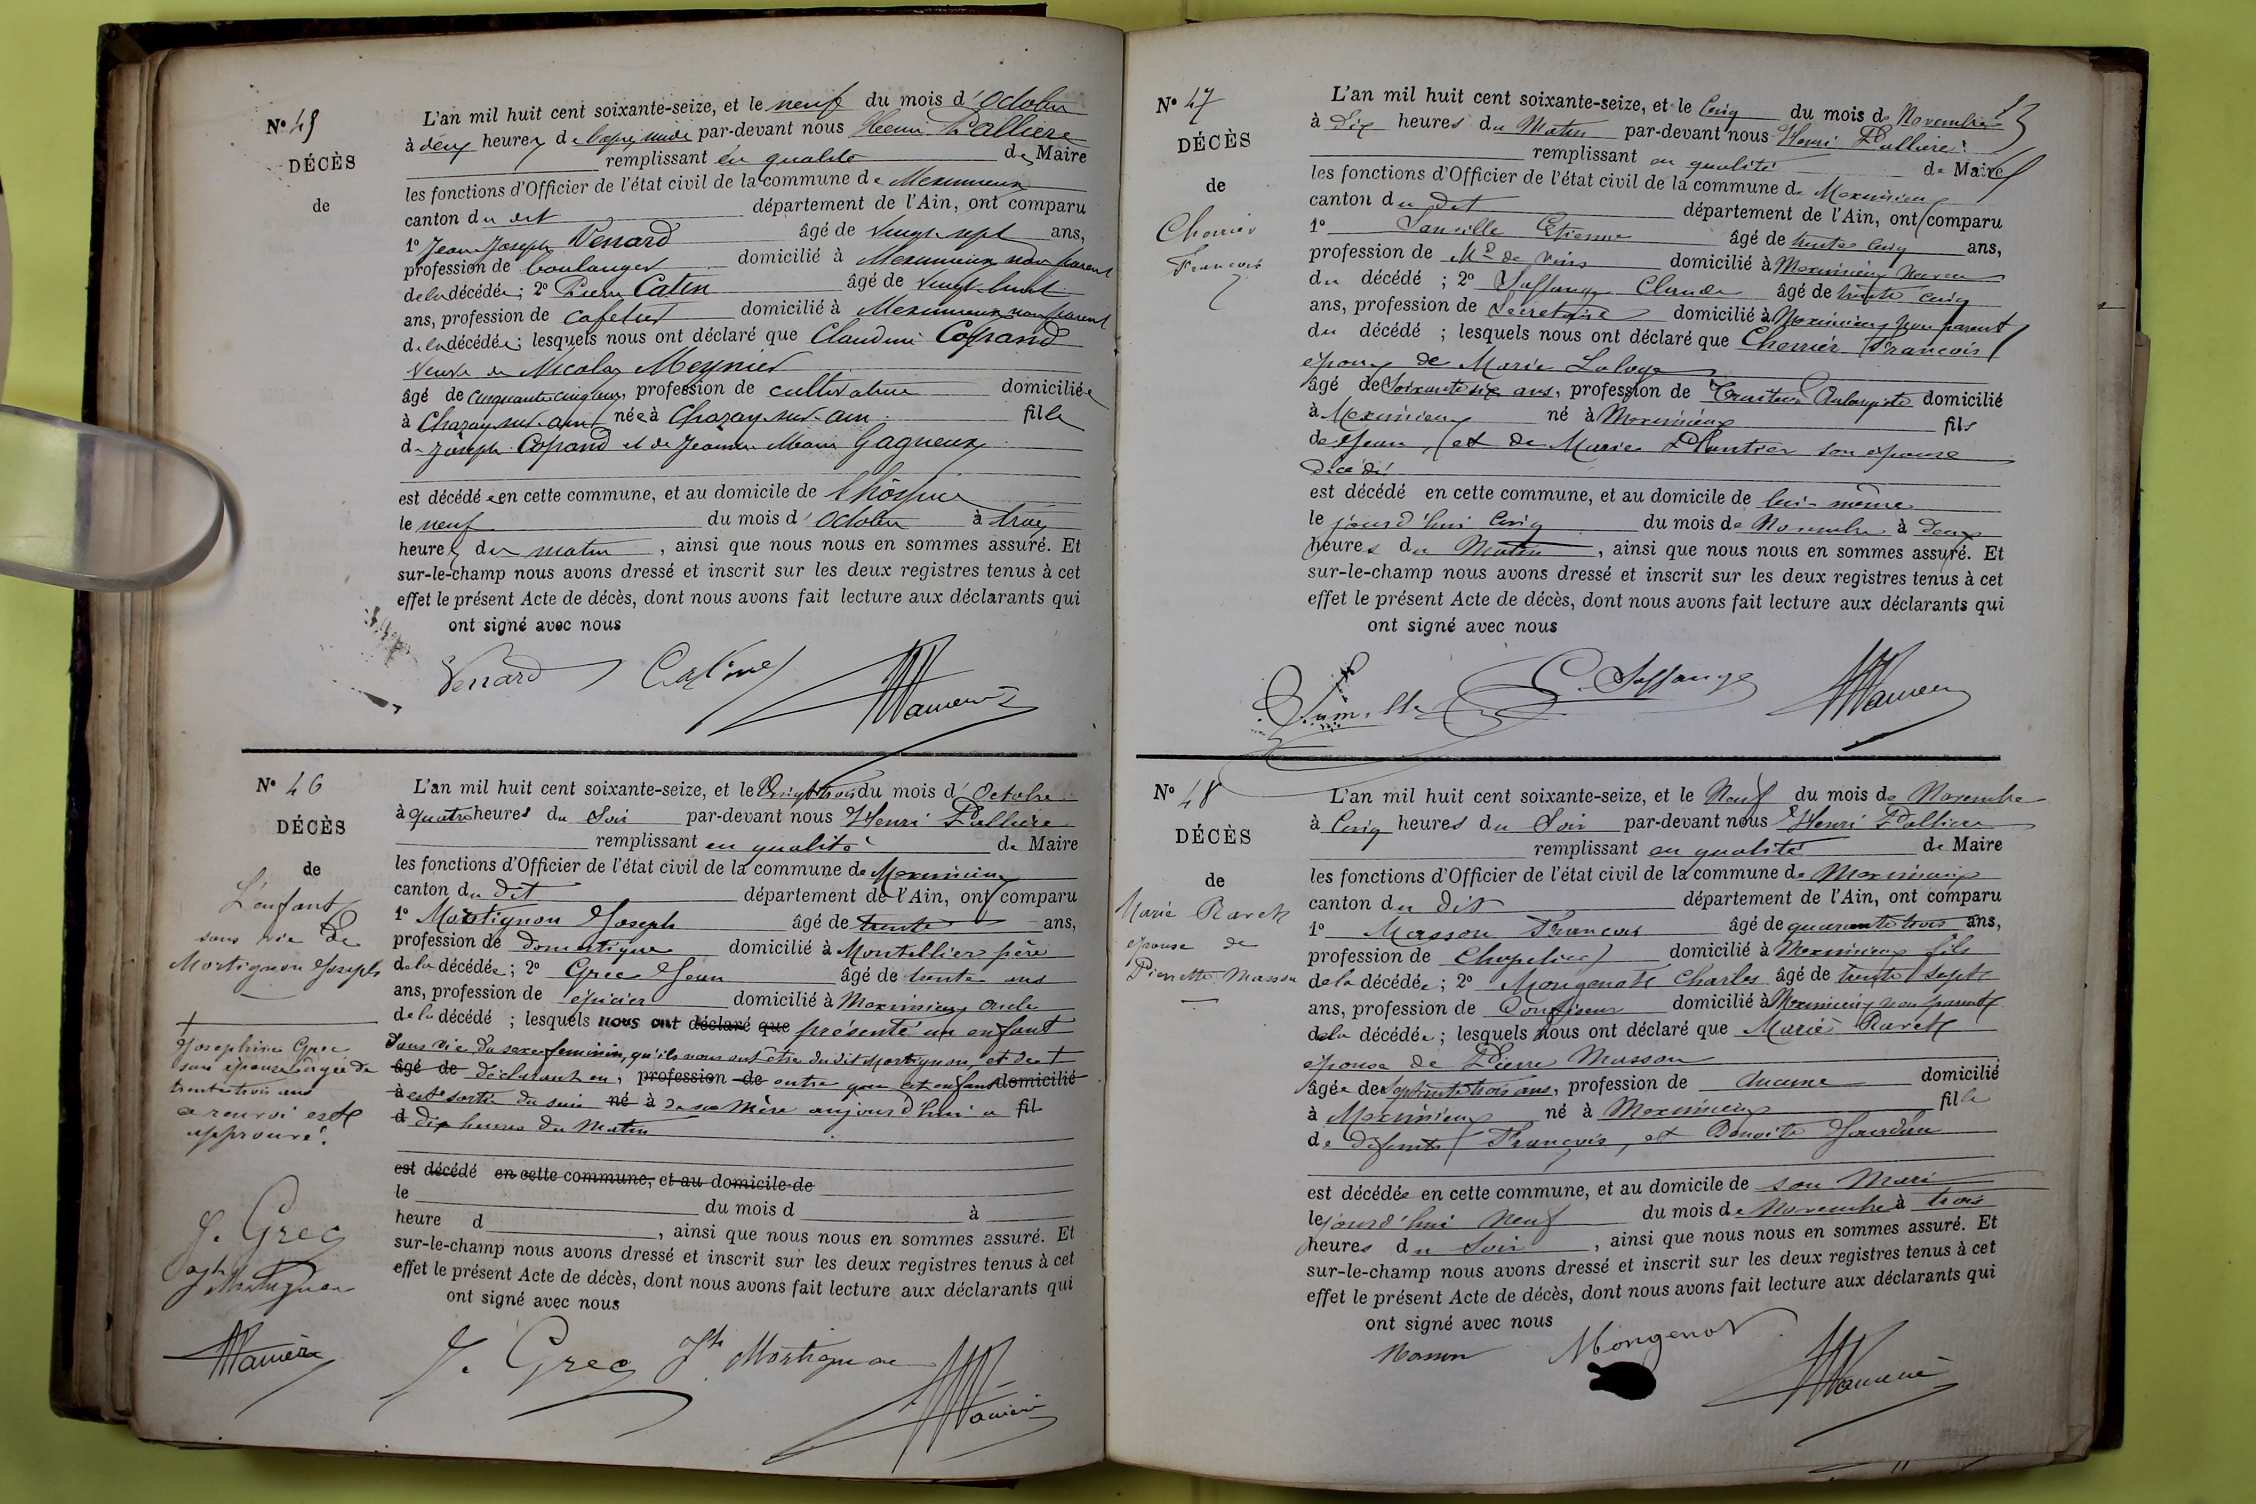 N° 45
DÉCÈS
de
L'an mil huit cent soixante-seize, et le neuf du mois d'Octobre
à deux heures de par-devant nous Henri Pallière
remplissant en qualité de Maire
les fonctions d'Officier de l'état civil de la commune de Meximieux
canton du dit département de l'Ain, ont comparu
1° Jean Joseph Venard âgé de vingt sept ans,
profession de boulanger domicilié à Meximieux non parent
de la décédée; 2° Pierre Catin âgé de vingt huit
ans, profession de cafetier domicilié à Meximieux non parent
de la décédée; lesquels nous ont déclaré que Claudine
veuve de Nicolas Meynier
âgé de cinquante cinq ans, profession de cultivateur domiciliée
à Chazay-sur-ain née à Chazay-sur-ain fille
de Joseph et de Jeanne Marie Gagneux
est décédée en cette commune, et au domicile de l'hospice
le neuf du mois d'Octobre à trois
heures du matin, ainsi que nous nous en sommes assuré. Et
sur-le-champ nous avons dressé et inscrit sur les deux registres tenus à cet
effet le présent Acte de décès, dont nous avons fait lecture aux déclarants qui
ont signé avec nous
Venard
N° 46
DÉCÈS
de
L'enfant
sans vie de
Mortignon Joseph
L'an mil huit cent soixante-seize, et le vingt trois du mois d'Octobre
à quatre heures du Soir par-devant nous Henri Pallière
remplissant en qualité de Maire
les fonctions d'Officier de l'état civil de la commune de Meximieux
canton du dit département de l'Ain, ont comparu
1° Mortignon Joseph âgé de trente ans,
profession de domestique domicilié à Montellier père
de la décédée; 2° Grec Jean âgé de trente ans
ans, profession de épicier domicilié à Meximieux oncle
de la décédé ; lesquels nous ont déclaré que présenté un enfant
sans vie du sexe féminin, qu'ils nous ont être du dit Mortignon, et de +
âgé de déclarant en, profession de outre que cet enfant domicilié
à est sortie du sein né à de sa Mère aujourd'hui a fil
d dix heures du Matin
+
Joséphine Grec
son épouse âgée de
trente trois ans
ce renvoi est
approuvé.
est décédé en cette commune, et au domicile de
le du mois d à
heure d , ainsi que nous nous en sommes assuré. Et
sur-le-champ nous avons dressé et inscrit sur les deux registres tenus à cet
effet le présent Acte de décès, dont nous avons fait lecture aux déclarants qui
ont signé avec nous
J. Grec
J. Grec Jh Mortignon
N° 47
DÉCÈS
de
Cherrier
François
L'an mil huit cent soixante-seize, et le Cinq du mois de Novembre
à dix heures du Matin par-devant nous Henri Pallière
remplissant en qualité de Maire
les fonctions d'Officier de l'état civil de la commune de Meximieux
canton du dit département de l'Ain, ont comparu
1° Etienne âgé de trente cinq ans,
profession de Md de vins domicilié à Meximieux neveu
du décédé ; 2° Saffange Claude âgé de trente cinq
ans, profession de Secrétaire domicilié à Meximieux non parent
du décédé ; lesquels nous ont déclaré que Cherrier François
époux de Marie
âgé de Soixante six ans, profession de domicilié
à Meximieux né à Meximieux fils
de Jean et de Marie Plantier son épouse
décédé
est décédé en cette commune, et au domicile de lui-même
le jourd'hui Cinq du mois de Novembre à deux
heures du Matin, ainsi que nous nous en sommes assuré. Et
sur-le-champ nous avons dressé et inscrit sur les deux registres tenus à cet
effet le présent Acte de décès, dont nous avons fait lecture aux déclarants qui
ont signé avec nous
C. Saffange
N° 48
DÉCÈS
de
Marie Ravet
épouse de
Pierrette Masson
L'an mil huit cent soixante-seize, et le Neuf du mois de Novembre
à Cinq heures du Soir par-devant nous Henri Pallière
remplissant en qualité de Maire
les fonctions d'Officier de l'état civil de la commune de Meximieux
canton du dit département de l'Ain, ont comparu
1° Masson François âgé de quarante trois ans,
profession de Chapelier domicilié à Meximieux fils
de la décédée; 2° Mongenot Charles âgé de trente sept
ans, profession de Confiseur domicilié à Meximieux non parent
de la décédée; lesquels nous ont déclaré que Marie Ravet
épouse de Pierre Masson
âgée de Septante trois ans, profession de Aucune domicilié
à Meximieux né à Meximieux fille
de défunts François, et Benoite Jourdan
est décédée en cette commune, et au domicile de son Mari
le jourd'hui Neuf du mois de Novembre à trois
heures du Soir, ainsi que nous nous en sommes assuré. Et
sur-le-champ nous avons dressé et inscrit sur les deux registres tenus à cet
effet le présent Acte de décès, dont nous avons fait lecture aux déclarants qui
ont signé avec nous
Masson Mongenot